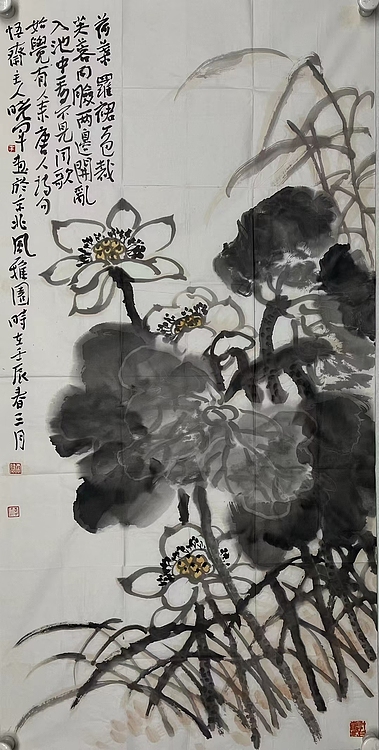 荷葉羅裙一色裁
芙蓉向臉兩邊開亂
入池中看不見聞歌
始覺有人来唐人詩句
悟齋主人曉军畫於京北風雅園時在壬辰春三月